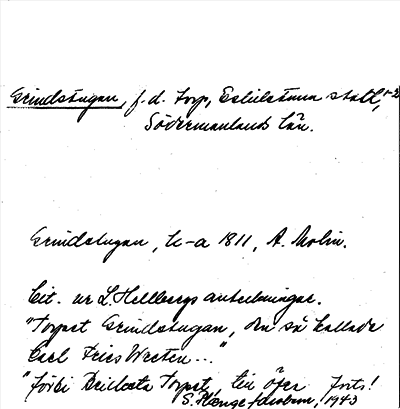 Grindstugan, f.d. torp, Eskilstuna stad,
Södermanlands län.
Grindstugan, k-a 1811, A. Molin.
Cit. ur L. Hellbergs anteckningar.
"Torpet Grindstugan, den så kallade
Carl Fries
"förbi torpet, till Fors!
1943